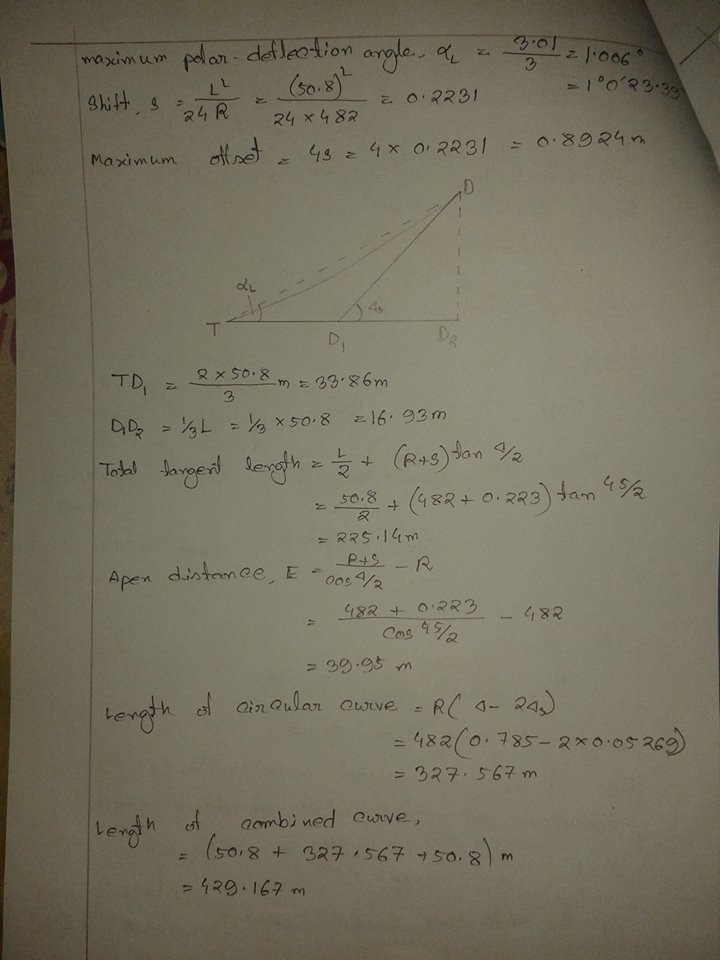 maximum polar-deflection angle, αL = 3.01/3 = 1.006°
= 1°0'23.33
Shift, s = L²/24R = (50.8)²/24×482 = 0.2231
Maximum offset = 4s = 4 × 0.2231 = 0.8924m
D
αL
Δs
T
D1
D2
TD1 = 2×50.8/3 m = 33.86m
D1D2 = 1/3L = 1/3 × 50.8 = 16.93m
Total tangent length = L/2 + (R+S) tan Δ/2
= 50.8/2 + (482 + 0.223) tan 45/2
= 225.14m
Apex distance, E = R+S/cos Δ/2 - R
= 482 + 0.223/cos 45/2 - 482
= 39.95 m
Length of circular curve = R(Δ - 2Δs)
= 482(0.785 - 2×0.05269)
= 327.567 m
Length of combined curve,
= (50.8 + 327.567 + 50.8) m
= 429.167 m